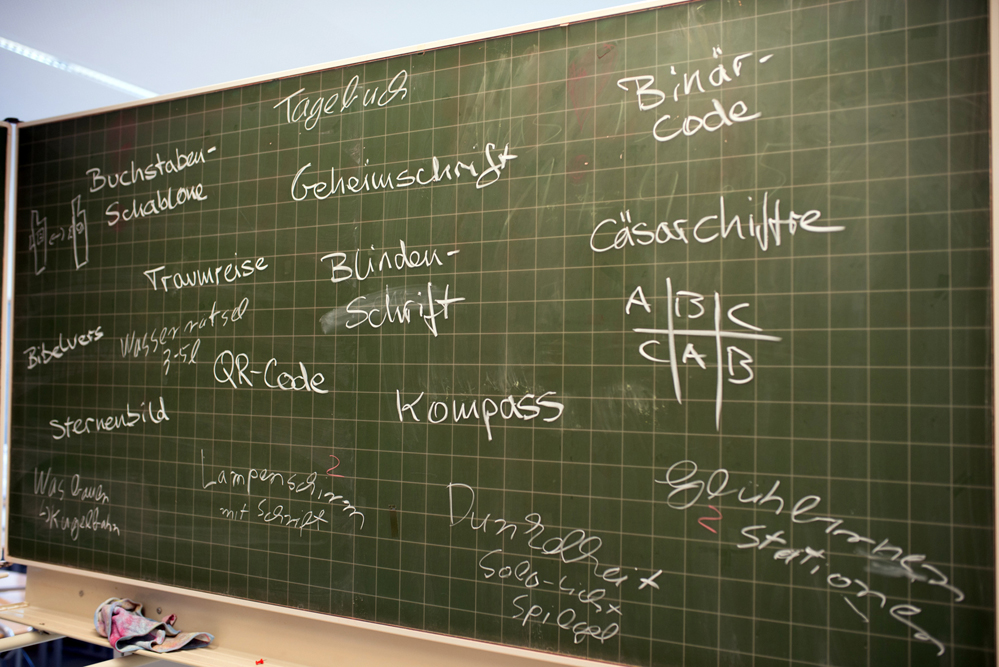 Tagebuch
Binär-
code
Buchstaben-
Schablone
Geheimschrift
Cäsarchiffre
Traumreise
Blinden-
Schrift
A B C
C A B
Bibelvers
Wasserrätsel
3-5l
QR-Code
Kompass
Sternenbild
Was bauen
↳ Kugelbahn
Lampenschirm
mit Schrift
2
Dunkelheit
Solo-Licht
Spiegel
Glühbirnen
2
Stationen